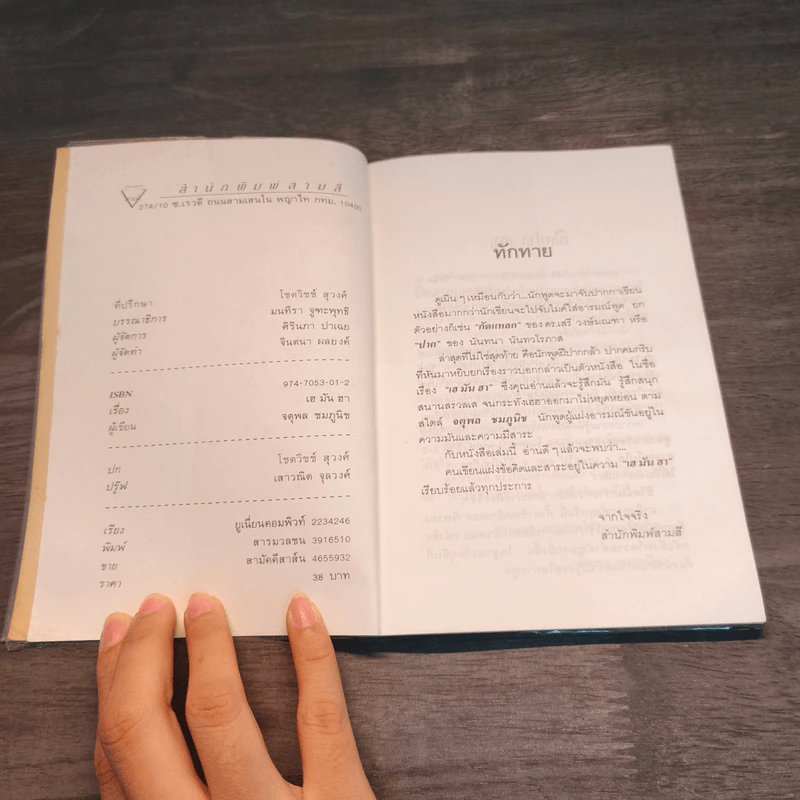 สำนักพิมพ์สามสี
274/10 ซ.เรวดี ถนนสามเสนใน พญาไท กทม. 10400
ที่ปรึกษา โชตวิชช์ สุวงค์
บรรณาธิการ มนทิรา จูฑะพุทธิ
ผู้จัดการ คีรินภา ปาเฉย
ผู้จัดทำ จินตนา ผลยงค์
ISBN 974-7053-01-2
เรื่อง เฮ มัน ฮา
ผู้เขียน จตุพล ชมภูนิช
ปก โชตวิชช์ สุวงค์
ปรู๊ฟ เสาวณิต จุลวงค์
เรียง ยูเนี่ยนคอมพิวท์ 2234246
พิมพ์ สารมวลชน 3916510
ขาย สามัคคีสาส์น 4655932
ราคา 38 บาท
ทักทาย
ดูเผิน ๆ เหมือนกับว่า...นักพูดจะมาจับปากกาเขียน
หนังสือมากกว่านักเขียนจะไปจับไมค์ใส่อารมณ์พูด ยก
ตัวอย่างก็เช่น "กัดแหลก" ของ ดร.เสรี วงษ์มณฑา หรือ
"ปาก" ของ นันทนา นันทวโรภาส
ล่าสุดที่ไม่ใช่สุดท้าย คือนักพูดฝีปากกล้า ปากคมกริบ
ที่หันมาหยิบยกเรื่องราวบอกกล่าวเป็นตัวหนังสือ ในชื่อ
เรื่อง "เฮ มัน ฮา" ซึ่งคุณอ่านแล้วจะรู้สึกมัน รู้สึกสนุก
สนานสรวลเส จนกระทั่งเฮฮาออกมาไม่หยุดหย่อน ตาม
สไตล์ จตุพล ชมภูนิช นักพูดผู้แฝงอารมณ์ขันอยู่ใน
ความมันและความมีสาระ
กับหนังสือเล่มนี้ อ่านดี ๆ แล้วจะพบว่า...
คนเขียนแฝงข้อคิดและสาระอยู่ในความ "เฮ มัน ฮา"
เรียบร้อยแล้วทุกประการ
จากใจจริง
สำนักพิมพ์สามสี